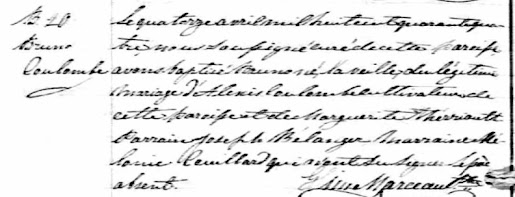 B 20
Bruno
Coulombe
Le quatorze avril mil huit cent quarante qua-
tre nous soussigné curé de cette paroisse
avons baptisé Bruno né la veille du légitime
mariage d'Alexis Coulombe cultivateur de
cette paroisse et de Marguerite Therriault
Parrain Joseph Bélanger Marraine Mé-
lonie Couillard qui n'ont su signer le père
absent.